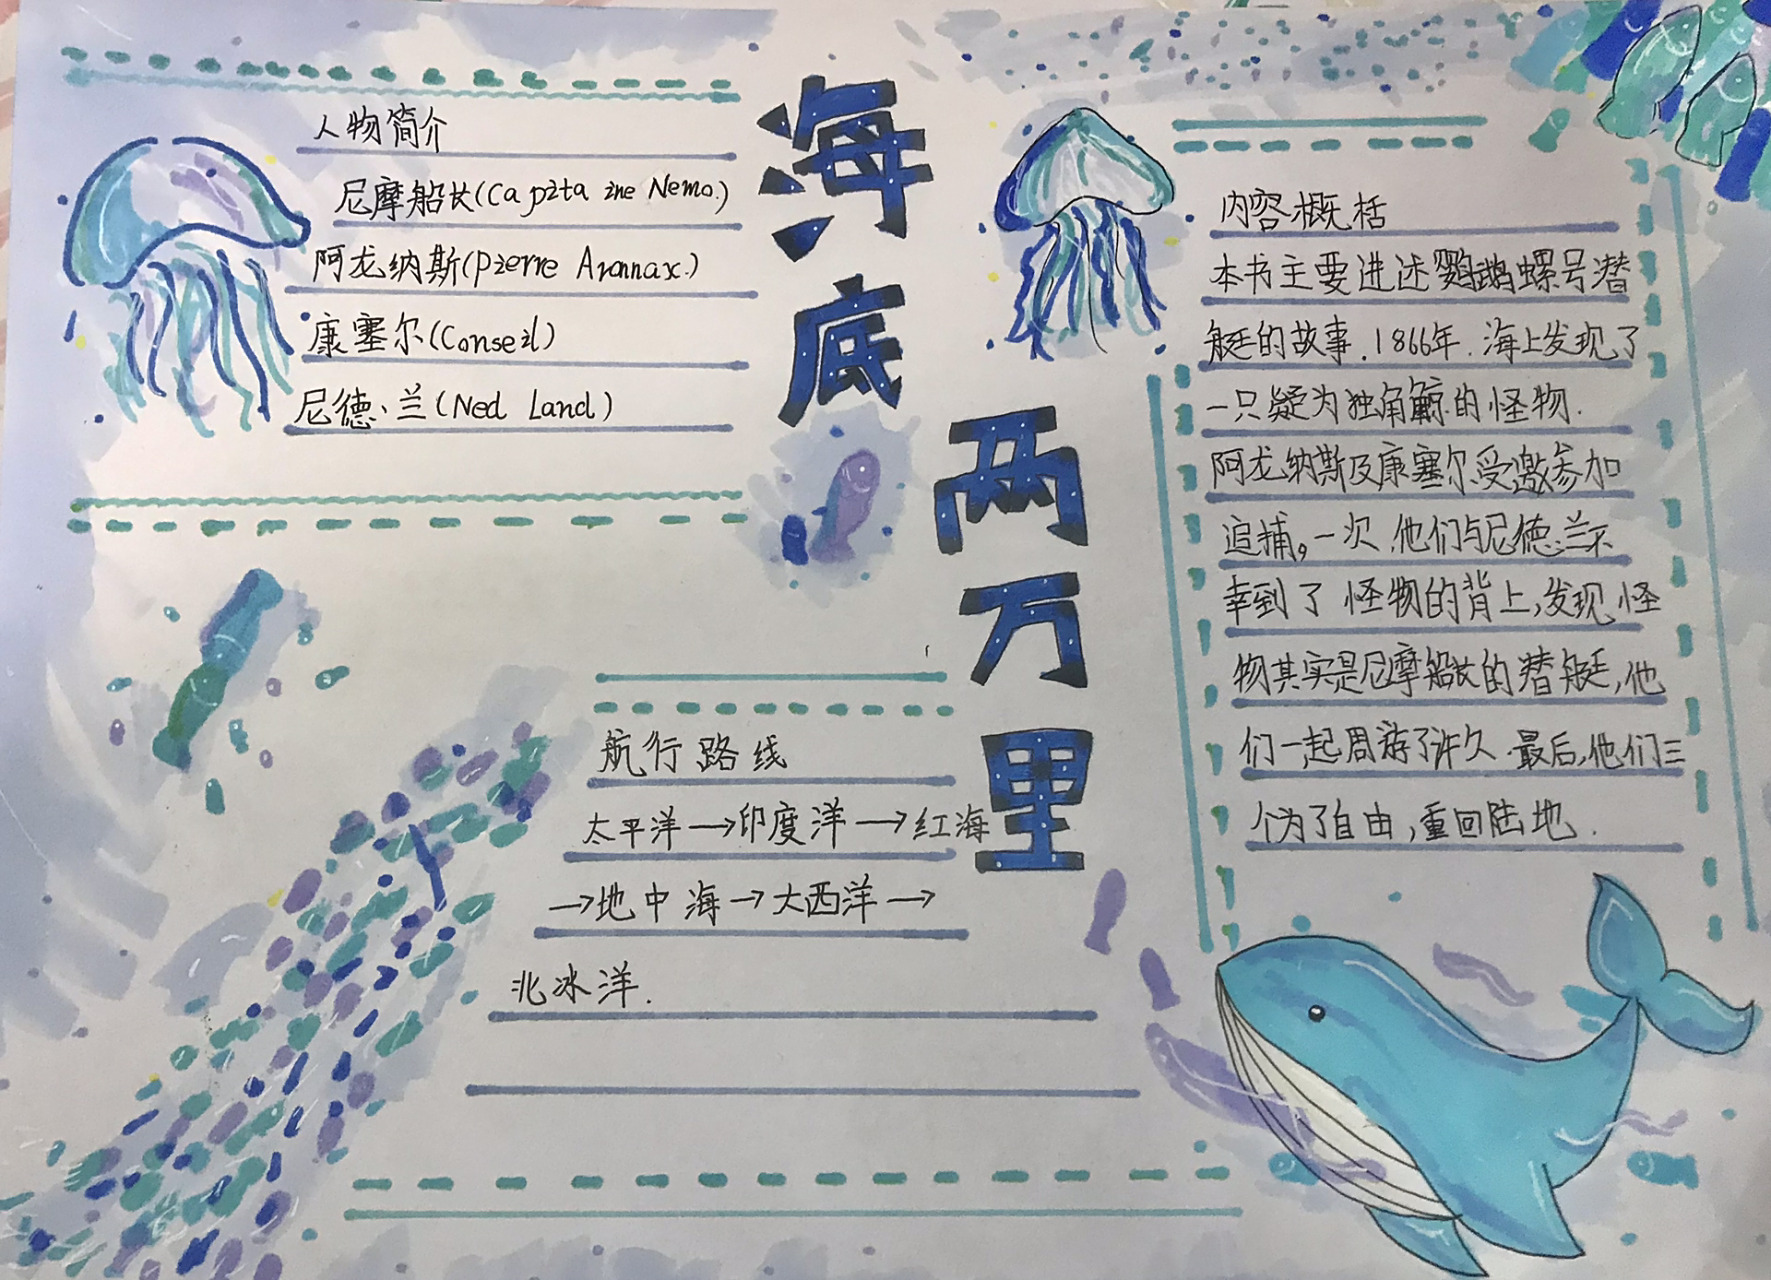 海底
两万里
人物简介
尼摩船长(Capitaine Nemo.)
阿龙纳斯(Pierre Aronnax.)
康塞尔(Conseil)
尼德·兰(Ned Land)
航行路线
太平洋→印度洋→红海
→地中海→大西洋→
北冰洋.
内容概括
本书主要进述鹦鹉螺号潜
艇的故事.1866年.海上发现了
一只疑为独角鲸的怪物.
阿龙纳斯及康塞尔受邀参加
追捕。一次.他们与尼德·兰不
幸到了怪物的背上,发现怪
物其实是尼摩船长的潜艇,他
们一起周游了许久.最后,他们三
个为了自由,重回陆地.